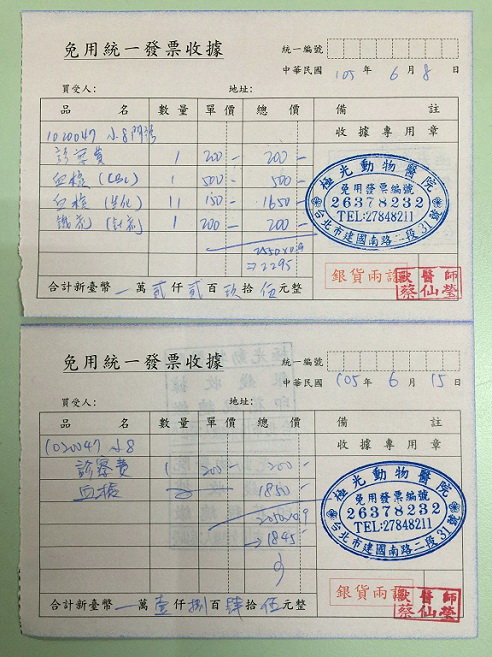 免用統一發票收據
統一編號
中華民國 105 年 6 月 8 日
買受人： 地址：
品名 數量 單價 總價 備註
收據專用章
1020047 小8 
診察費 1 200- 200-
血檢 (CBC) 1 500- 500-
血檢 (生化) 11 150- 1650-
1 200- 200-
2550x0.9
→2295
極光動物醫院
免用發票編號
26378232
TEL:27848211
台北市建國南路二段31號
銀貨兩訖
歐醫師
蔡仙瑩
合計新臺幣 一 萬 貳 仟 貳 百 玖 拾 伍 元整
免用統一發票收據
統一編號
中華民國 105 年 6 月 15 日
買受人： 地址：
品名 數量 單價 總價 備註
收據專用章
1020047 小8
診察費 1 200- 200-
血檢 1850-
2050x0.9
→1845
極光動物醫院
免用發票編號
26378232
TEL:27848211
台北市建國南路二段31號
銀貨兩訖
歐醫師
蔡仙瑩
合計新臺幣 一 萬 壹 仟 捌 百 肆 拾 伍 元整